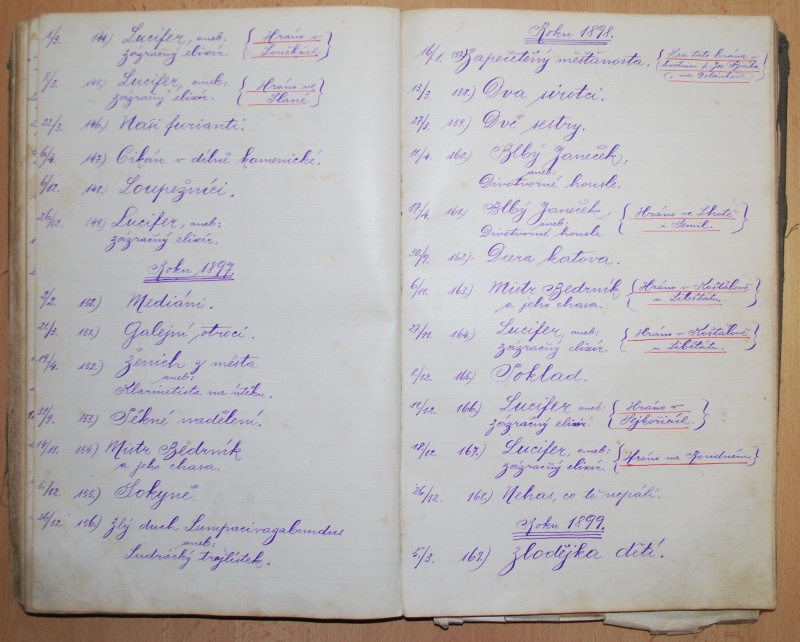 1/3. 144.) Lucifer, aneb: { Hráno v
zázračný elixír. Loučkách. }
2/3. 145.) Lucifer, aneb: { Hráno ve
zázračný elixír. Slané. }
22/3. 146.) Naši furianti.
6/4. 147.) Cikán v dílně kamenické.
6/12. 148.) Loupežníci.
26/12. 149.) Lucifer, aneb:
zázračný elixír.
Roku 1897.
2/2. 150.) Mediáni.
21/3. 151.) Galejní otroci.
19/4. 152.) Ženich z města
aneb:
Klarinetista na útěku.
29/9. 153.) Pěkné nadělení.
14/11. 154.) Mistr Bedrník
a jeho chasa.
5/12. 155.) Sokyně.
26/12. 156.) Zlý duch Lumpacivagabundus
aneb:
Ludrácký trojlístek.
Roku 1898.
16/1. 157.) Zapečetěný měšťanosta. { Hra tato hrána v
hostinci p. Jos.
na }
13/3. 158.) Dva sirotci.
27/3. 159.) Dvě sestry.
11/4. 160.) Blbý Janeček,
aneb:
Divotvorné housle.
17/4. 161.) Blbý Janeček, { Hráno ve Lhotě
aneb: u Semil. }
Divotvorné housle.
30/9. 162.) Dcera katova.
6/11. 163.) Mistr Bedrník { Hráno v Košťálově
a jeho chasa. u Libštátu. }
27/11. 164.) Lucifer, aneb: { Hráno v Košťálově
zázračný elixír. u Libštátu. }
8/12. 165.) Poklad.
11/12. 166.) Lucifer aneb: { Hráno v
zázračný elixír. }
18/12. 167.) Lucifer, aneb: { Hráno na
zázračný elixír. }
26/12. 168.) Nehas, co tě nepálí.
Roku 1899.
5/3. 169.) Zlodějka dětí.